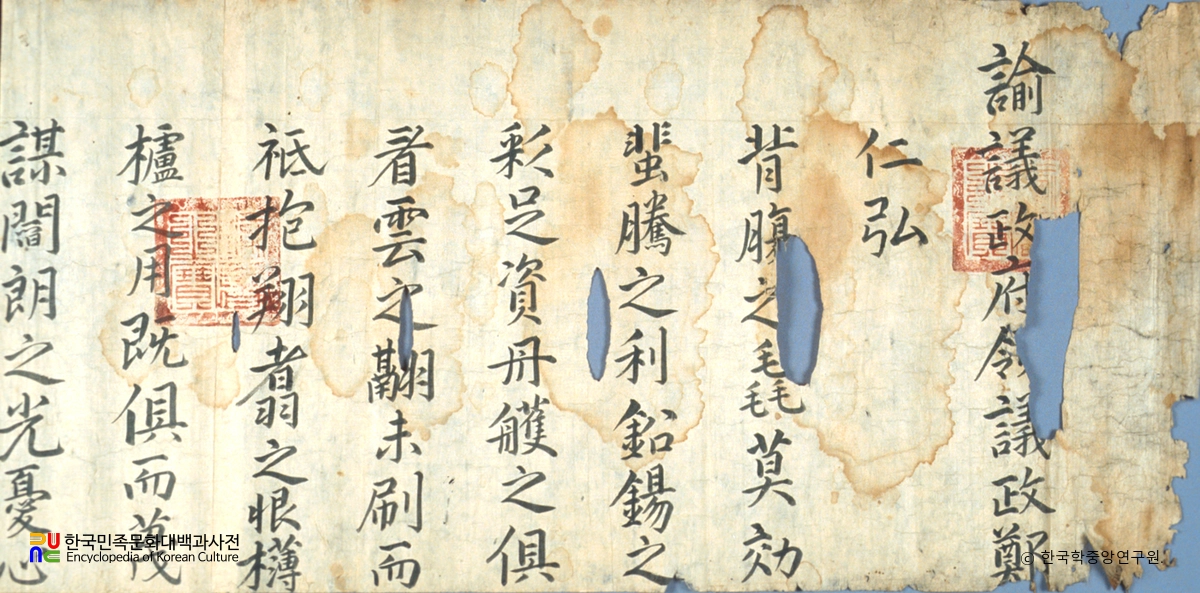 諭議政府領議政鄭
仁弘
背之毳莫効
蜚騰之利鉛錫之
彩足資丹艧之俱
看雲之翮未刷而
祗抱翔翥之恨欂
櫨之用既俱而蔑
謀朗之光憂心
한국민족문화대백과사전
Encyclopedia of Korean Culture
ⓒ 한국학중앙연구원